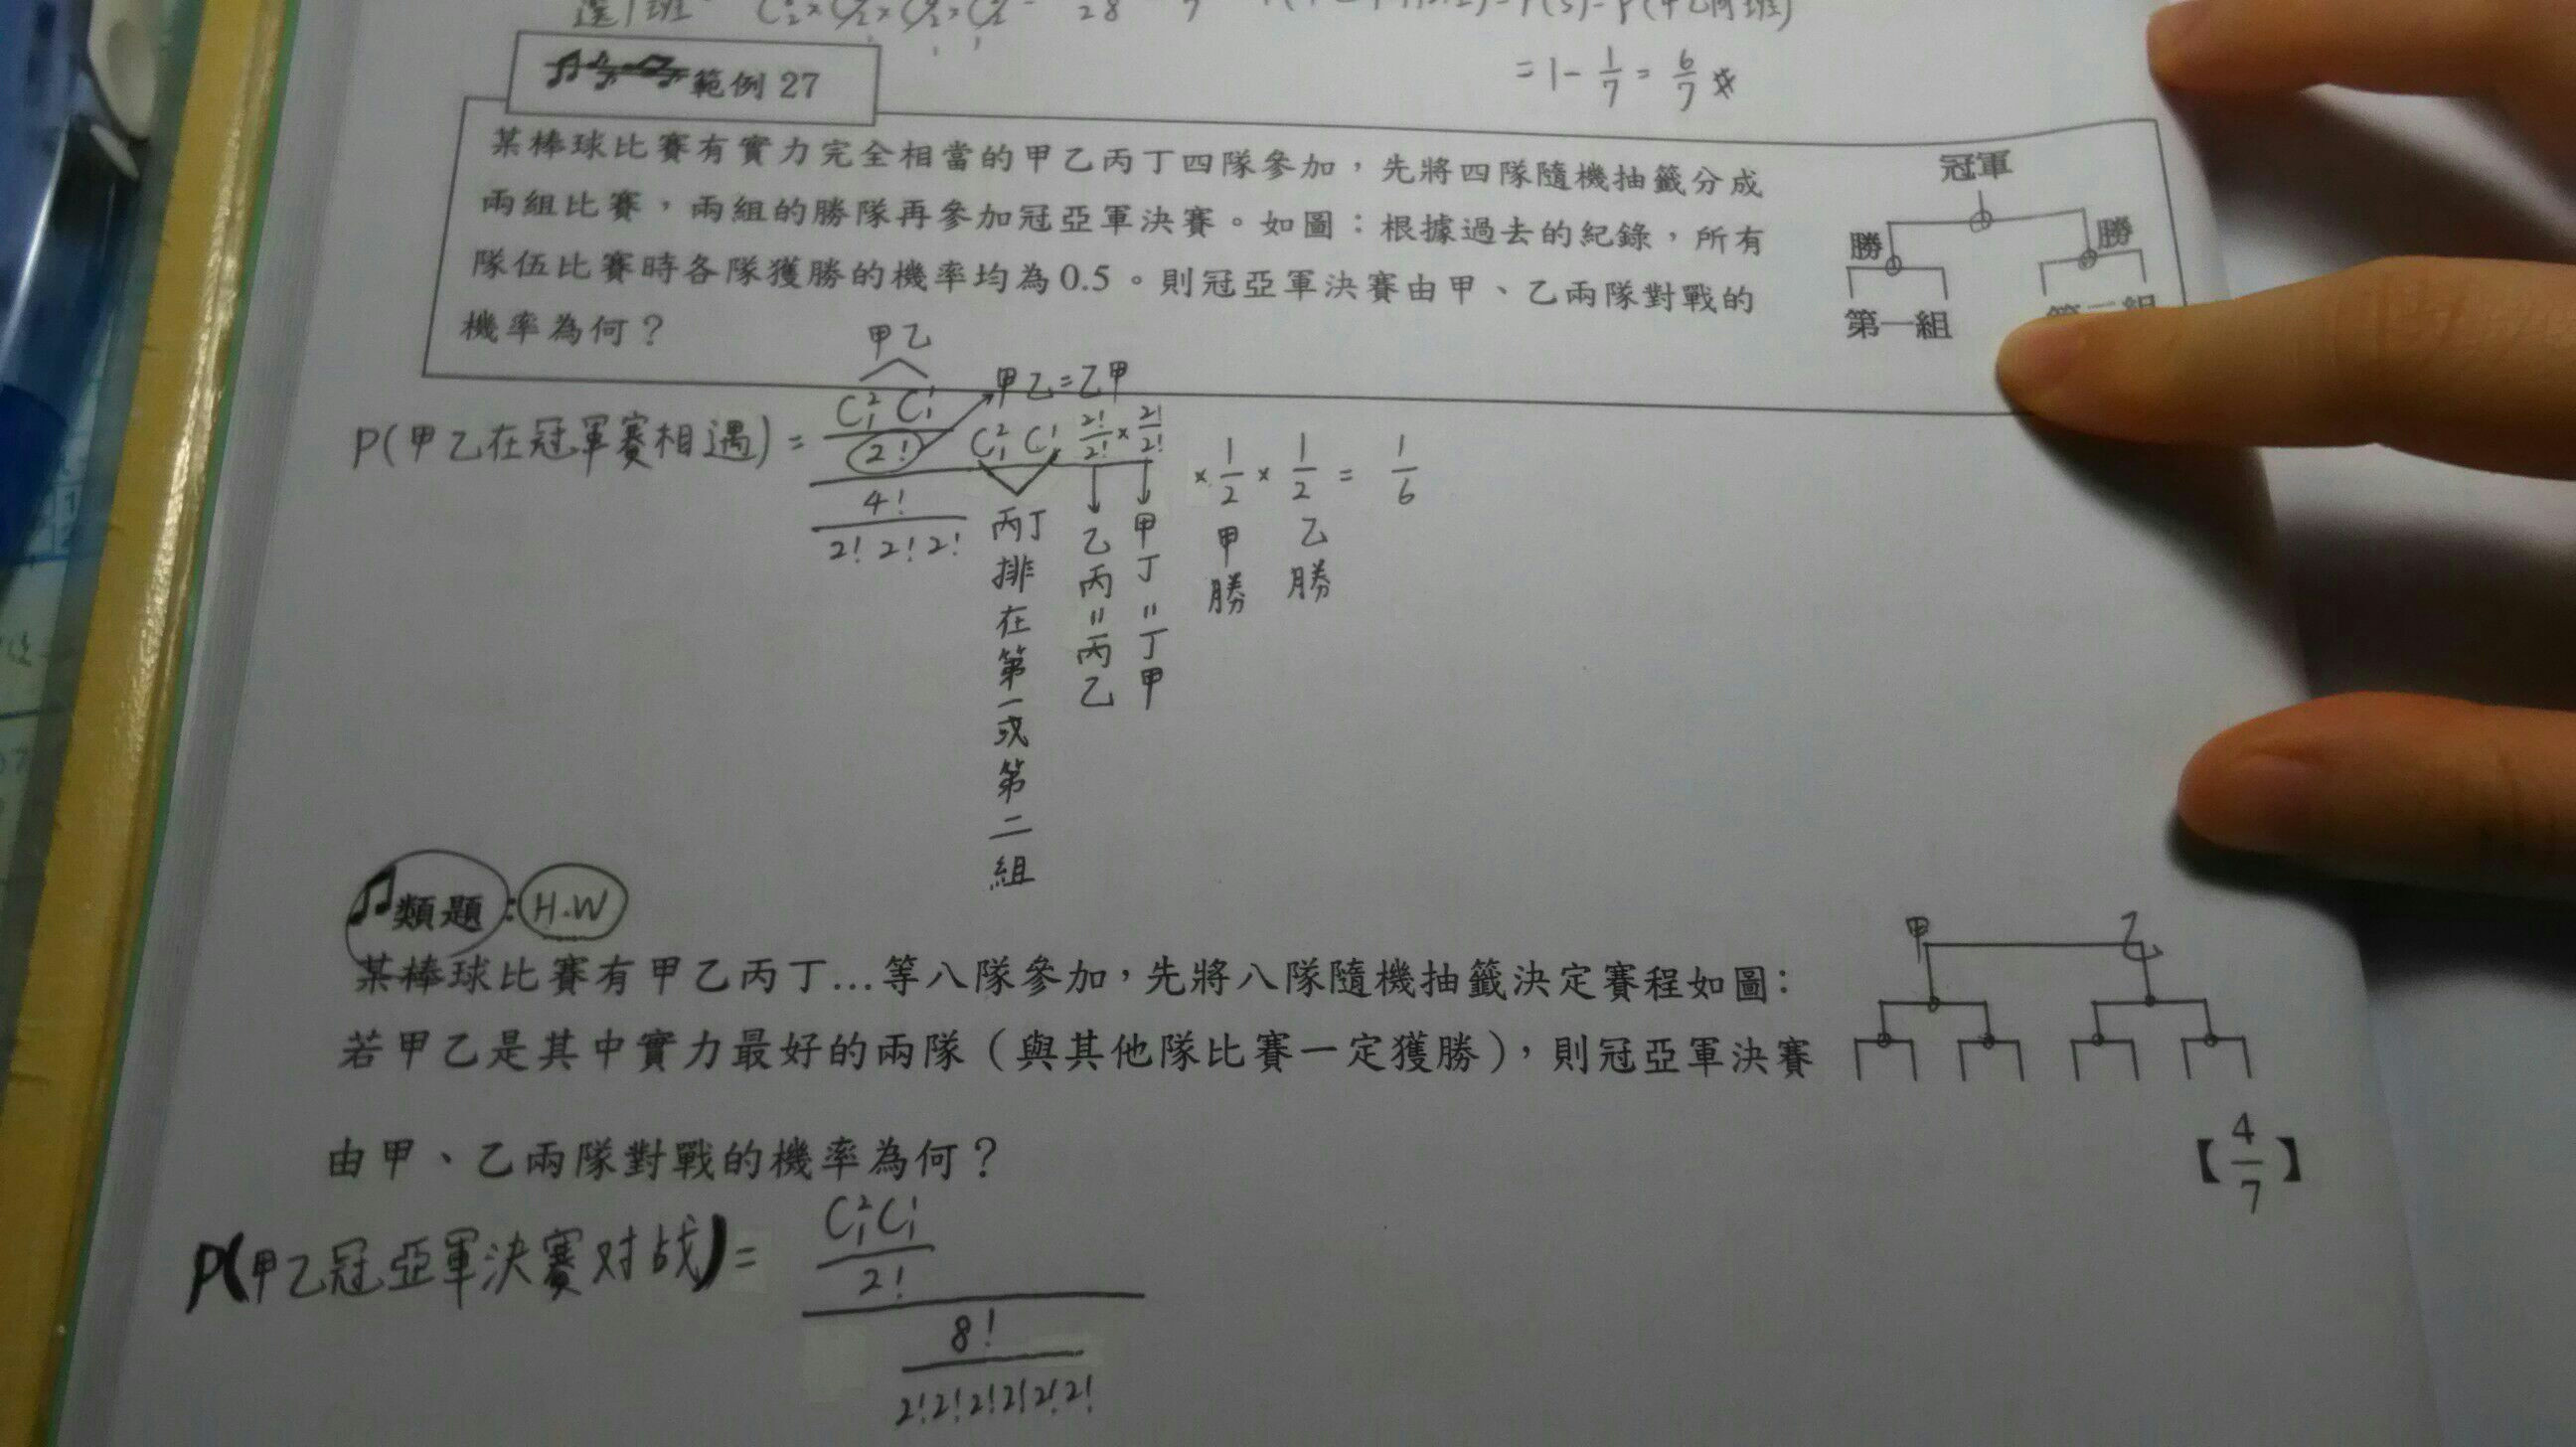 選1班
= 1 - 1/7 = 6/7 ※
範例 27
某棒球比賽有實力完全相當的甲乙丙丁四隊參加，先將四隊隨機抽籤分成
兩組比賽，兩組的勝隊再參加冠亞軍決賽。如圖：根據過去的紀錄，所有
隊伍比賽時各隊獲勝的機率均為0.5。則冠亞軍決賽由甲、乙兩隊對戰的
機率為何？
冠軍
勝 勝
第一組
甲乙
甲乙=乙甲
P(甲乙在冠軍賽相遇) =
C²₁ C¹₁ / 2! C²₁ C¹₁ 2!/2! × 2!/2!
4! / 2! 2! 2!
× 1/2 × 1/2 = 1/6
丙丁排在第一或第二組
乙丙=丙乙
甲丁=丁甲
甲勝
乙勝
類題：H.W
某棒球比賽有甲乙丙丁…等八隊參加，先將八隊隨機抽籤決定賽程如圖：
若甲乙是其中實力最好的兩隊（與其他隊比賽一定獲勝），則冠亞軍決賽
由甲、乙兩隊對戰的機率為何？
甲 乙
【4/7】
P(甲乙冠亞軍決賽对战) =
C²₁ C¹₁ / 2!
8! / 2!2!2!2!2!2!